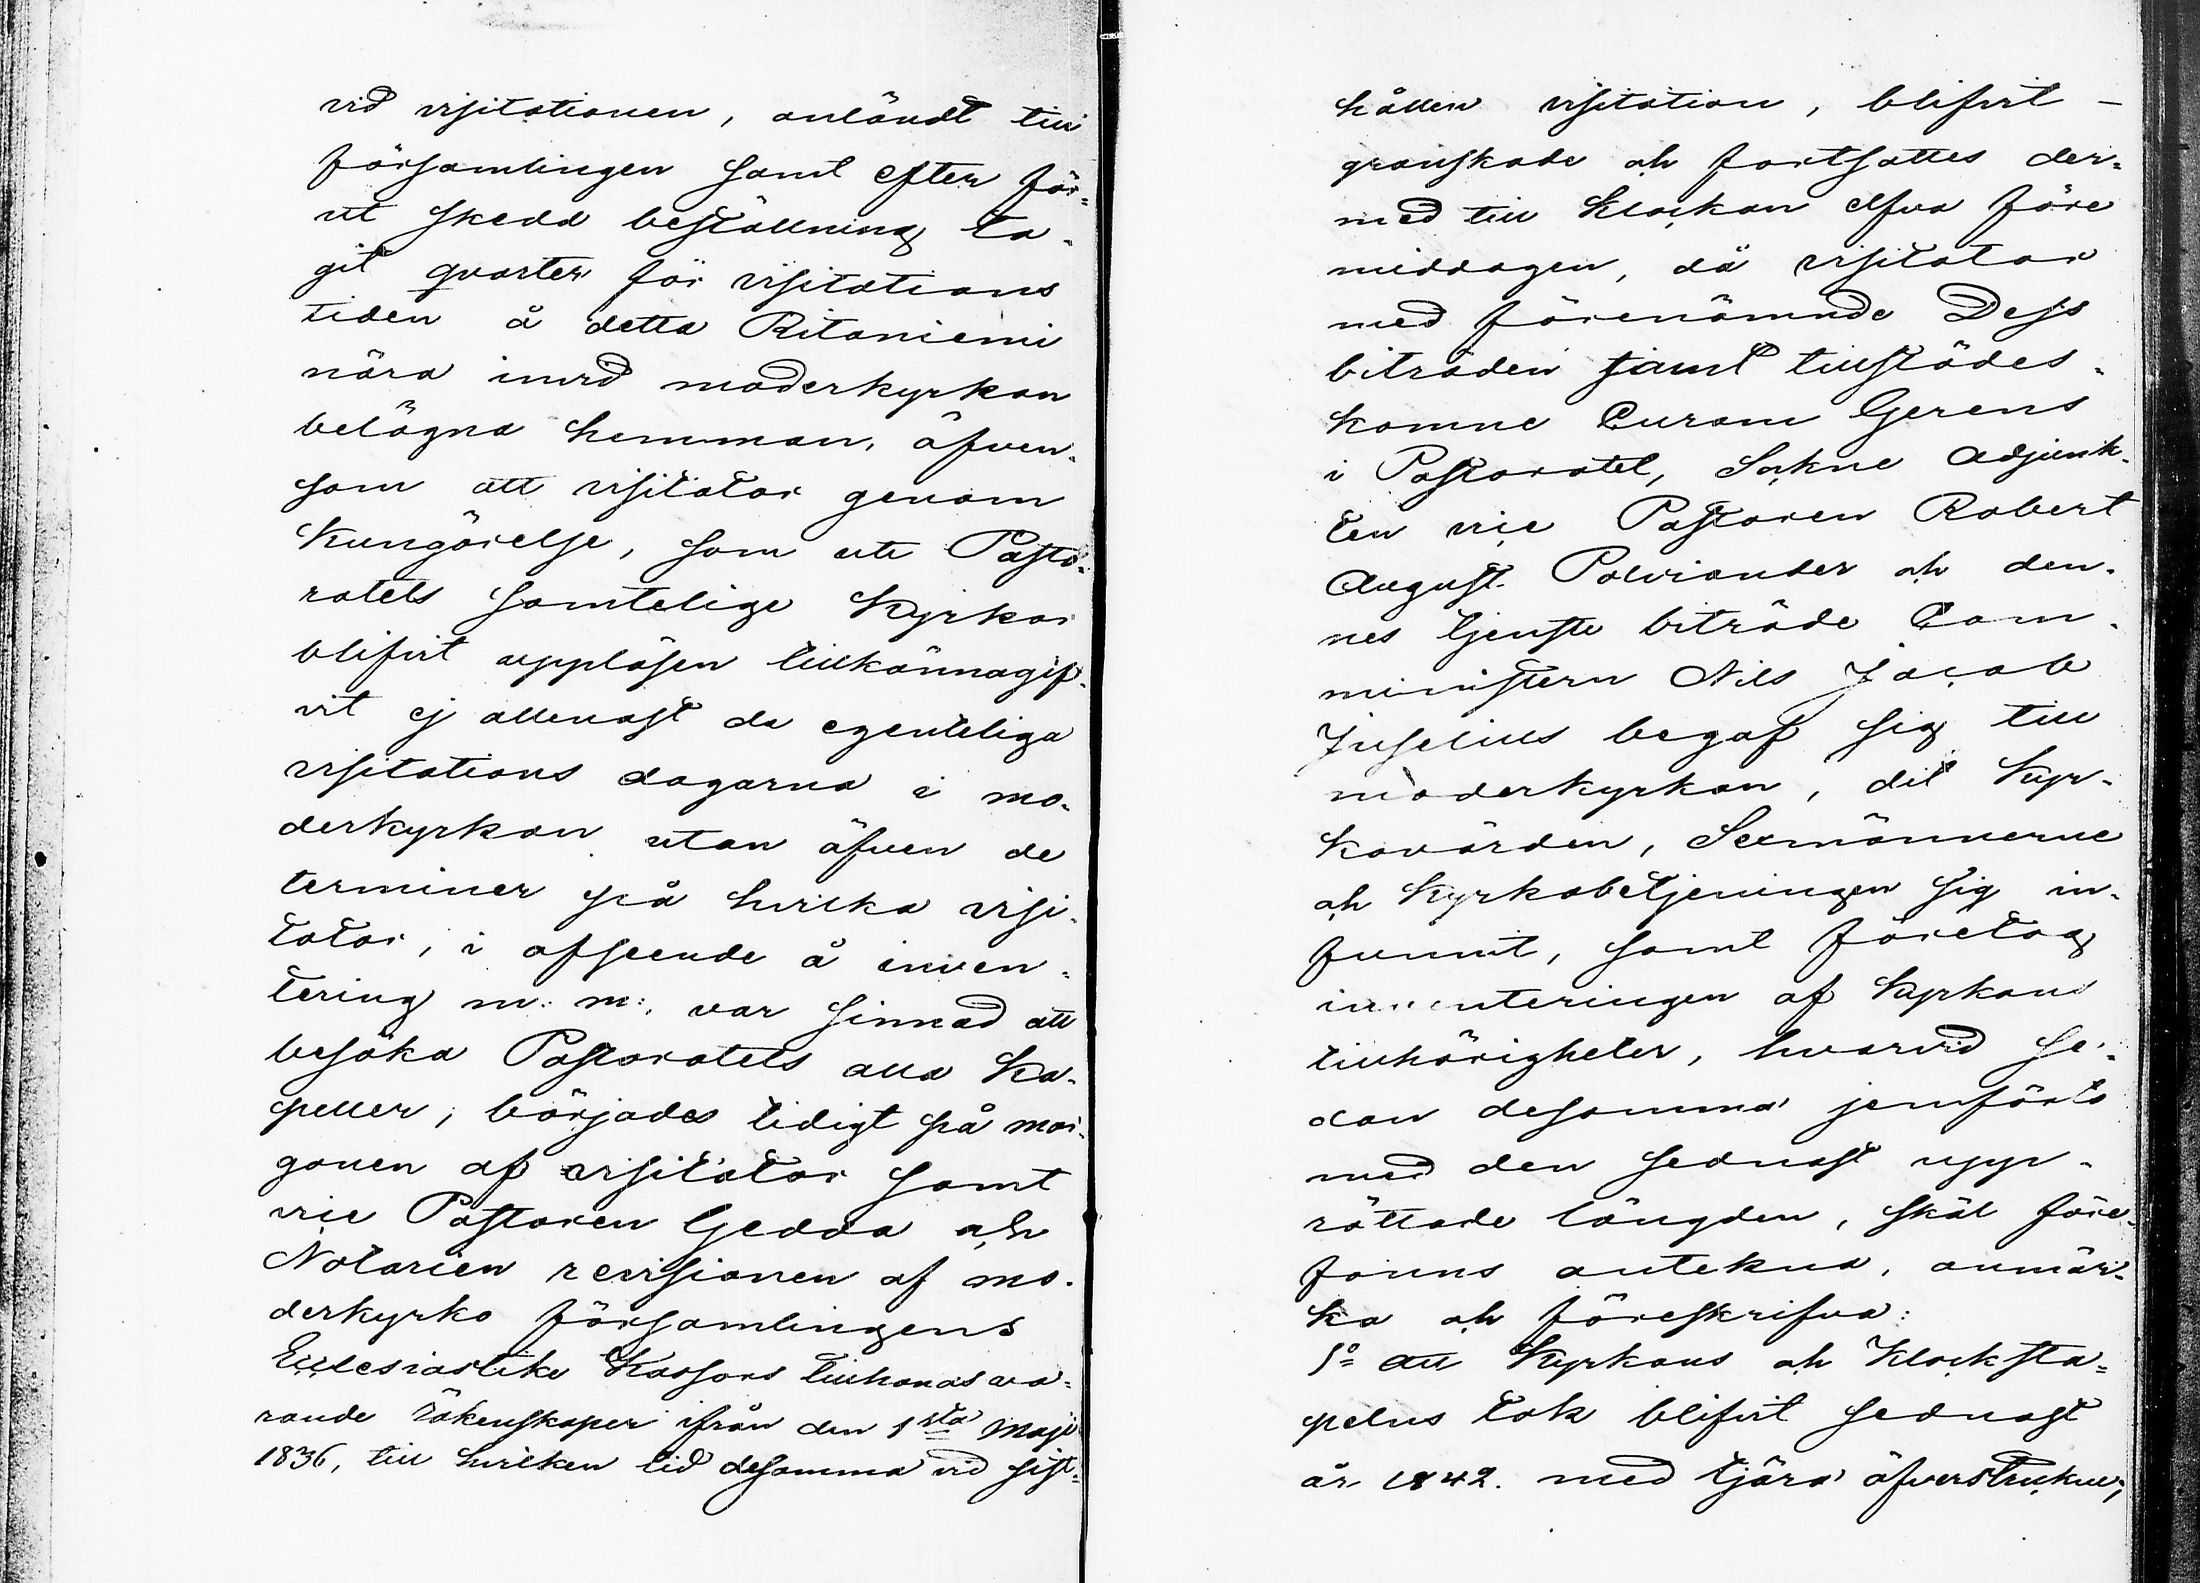 vid visitationen, anländt till
församlingen samt efter för=
ut skedd beställning ta=
git qvarter för visitations
tiden å detta Ritaniemi
nära invid moderkyrkan
belägna hemman, äfven=
som att visitator genom
Kungörelse, som uti Pasto=
ratets samtelige Kyrkor
blifvit uppläsen tillkännagif=
vit ej allenast de egenteliga
visitations dagarna i mo=
derkyrkan utan äfven de
terminer på hvilka visi=
tator, i afseende å inven=
tering m: m:, var sinnad att
besöka Pastoratets alla Ka=
peller, börjades tidigt på mor=
gonen af visitator samt
vice Pastoren Gedda och
Notarien revisionen af mo=
derkyrko församlingens
Ecclesiastike Kassors tillhandsva=
rande räkenskaper ifrån den 1sta Maji
1836, till hvilken tid desamma vid sist=
hållen visitation, blifvit –
granskade och fortsattes der=
med till klockan elfva före
middagen, då visitator
med förenämnde Dess
biträden jämt tillstädes=
komne Curam Gerens
i Pastoratet, Sockne Adjunk=
ten vice Pastoren Robert
August Polviander och den=
nes tjenste biträde Com=
ministern Nils Jacob
Juselius begaf sig till
moderkyrkan, dit Kyr=
kovärden, Sexmännerne
och Kyrkobetjeningen sig in=
funnit, samt företog
inventeringen af Kyrkans
tillhörigheter, hvarvid se=
dan desamma jemförts
med den sednast upp=
rättade längden, skäl före=
fanns anteckna, anmär=
ka och föreskrifva:
1º att Kyrkans och Klocksta=
pelns tak blifvit sednast
år 1842. med tjära öfverstrukne;